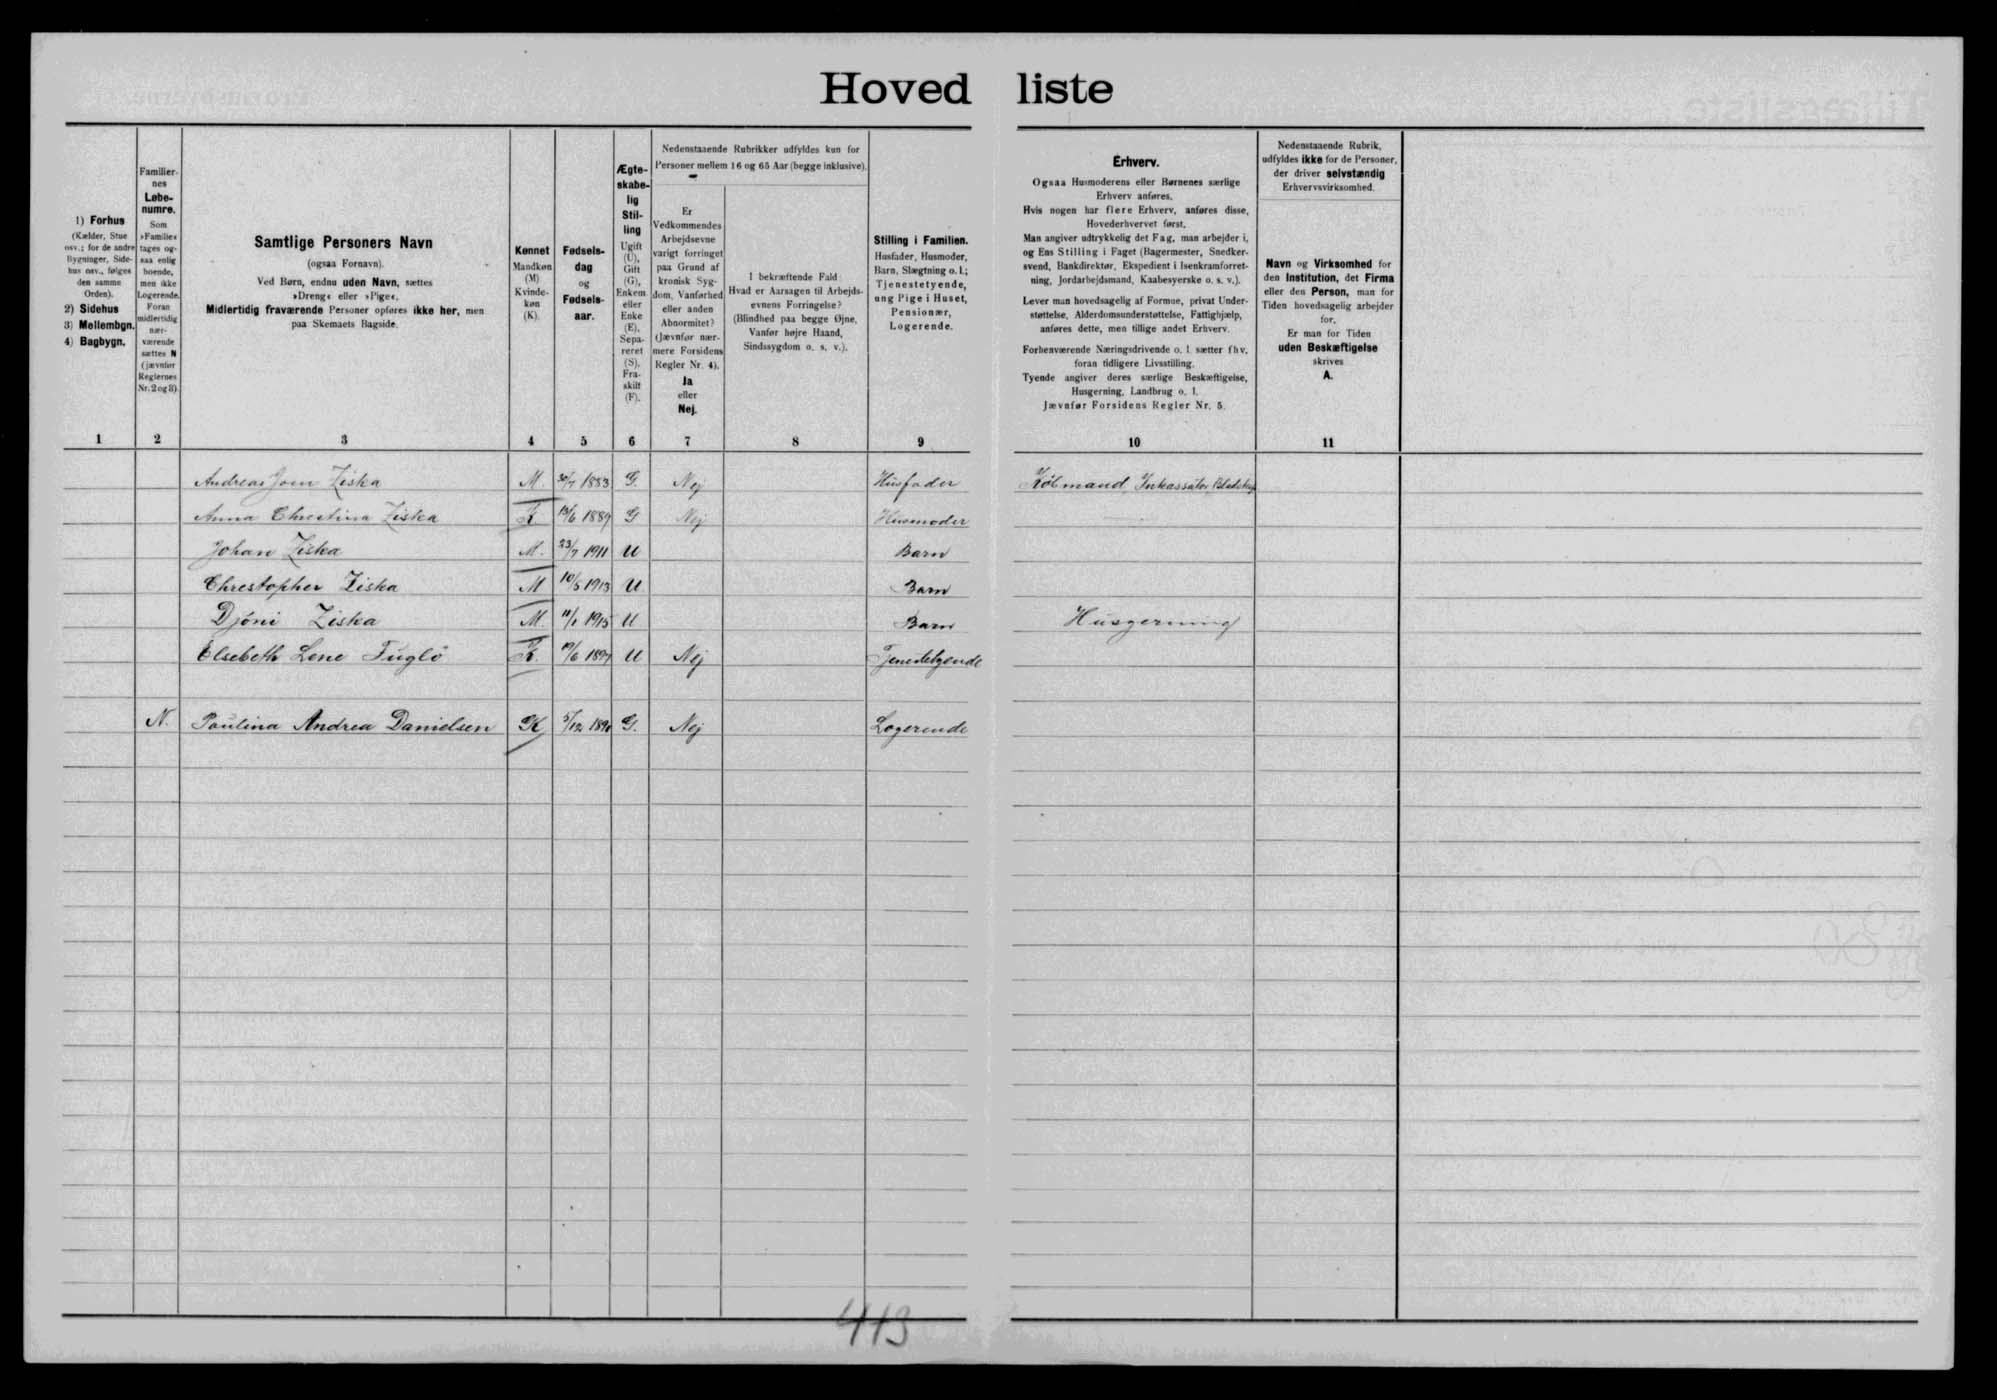 Hovedliste
1) Forhus
(Kælder, Stue
osv.; for de andre
Bygninger, Side-
hus osv., følges
den samme
Orden).
2) Sidehus
3) Mellembgn.
4) Bagbygn.
Familier-
nes
Løbe-
numre.
Som
»Familie«
tages og-
saa enlig
boende,
men ikke
Logerende.
Foran
midlertidig
nær-
værende
sættes N
(jævnfør
Reglernes
Nr. 2 og 3).
Samtlige Personers Navn
(ogsaa Fornavn).
Ved Børn, endnu uden Navn, sættes
»Dreng« eller »Pige«.
Midlertidig fraværende Personer opføres ikke her, men
paa Skemaets Bagside.
Kønnet
Mandkøn
(M)
Kvinde-
køn
(K).
Fødsels-
dag
og
Fødsels-
aar.
Ægte-
skabe-
lig
Stil-
ling
Ugift
(U),
Gift
(G),
Enkem.
eller
Enke
(E),
Sepa-
reret
(S),
Fra-
skilt
(F).
Nedenstaaende Rubrikker udfyldes kun for
Personer mellem 16 og 65 Aar (begge inklusive).
Er
Vedkommendes
Arbejdsevne
varigt forringet
paa Grund af
kronisk Syg-
dom, Vanførhed
eller anden
Abnormitet?
(Jævnfør nær-
mere Forsidens
Regler Nr. 4).
Ja
eller
Nej.
I bekræftende Fald:
Hvad er Aarsagen til Arbejds-
evnens Forringelse?
(Blindhed paa begge Øjne,
Vanfør højre Haand,
Sindssygdom o. s. v.).
Stilling i Familien.
Husfader, Husmoder,
Barn, Slægtning o. l.;
Tjenestetyende,
ung Pige i Huset,
Pensionær,
Logerende.
Erhverv.
Ogsaa Husmoderens eller Børnenes særlige
Erhverv anføres.
Hvis nogen har flere Erhverv, anføres disse,
Hovederhvervet først.
Man angiver udtrykkelig det Fag, man arbejder i,
og Ens Stilling i Faget (Bagermester, Snedker-
svend, Bankdirektør, Ekspedient i Isenkramforret-
ning, Jordarbejdsmand, Kaabesyerske o. s. v.).
Lever man hovedsagelig af Formue, privat Under-
støttelse, Alderdomsunderstøttelse, Fattighjælp,
anføres dette, men tillige andet Erhverv.
Forhenværende Næringsdrivende o. l. sætter fhv.
foran tidligere Livsstilling.
Tyende angiver deres særlige Beskæftigelse,
Husgerning, Landbrug o. l.
Jævnfør Forsidens Regler Nr. 5.
Nedenstaaende Rubrik,
udfyldes ikke for de Personer,
der driver selvstændig
Erhvervsvirksomhed.
Navn og Virksomhed for
den Institution, det Firma
eller den Person, man for
Tiden hovedsagelig arbejder
for.
Er man for Tiden
uden Beskæftigelse
skrives
A.
1 2 3 4 5 6 7 8 9 10 11
Andreas Joen Ziska M. 30/7 1883 G. Nej Husfader Købmand, Inkassator,
Anna Christina Ziska K. 13/6 1889 G Nej Husmoder
Johan Ziska M. 23/7 1911 U Barn
Christopher Ziska M 10/5 1913 U Barn
Djóni Ziska M. 11/1 1915 U Barn Husgerning
Elsebeth Lene Fuglö K. 19/6 1897 U Nej Tjenestetyende
N. Paulina Andrea Danielsen K 5/12 1890 G. Nej Logerende
413